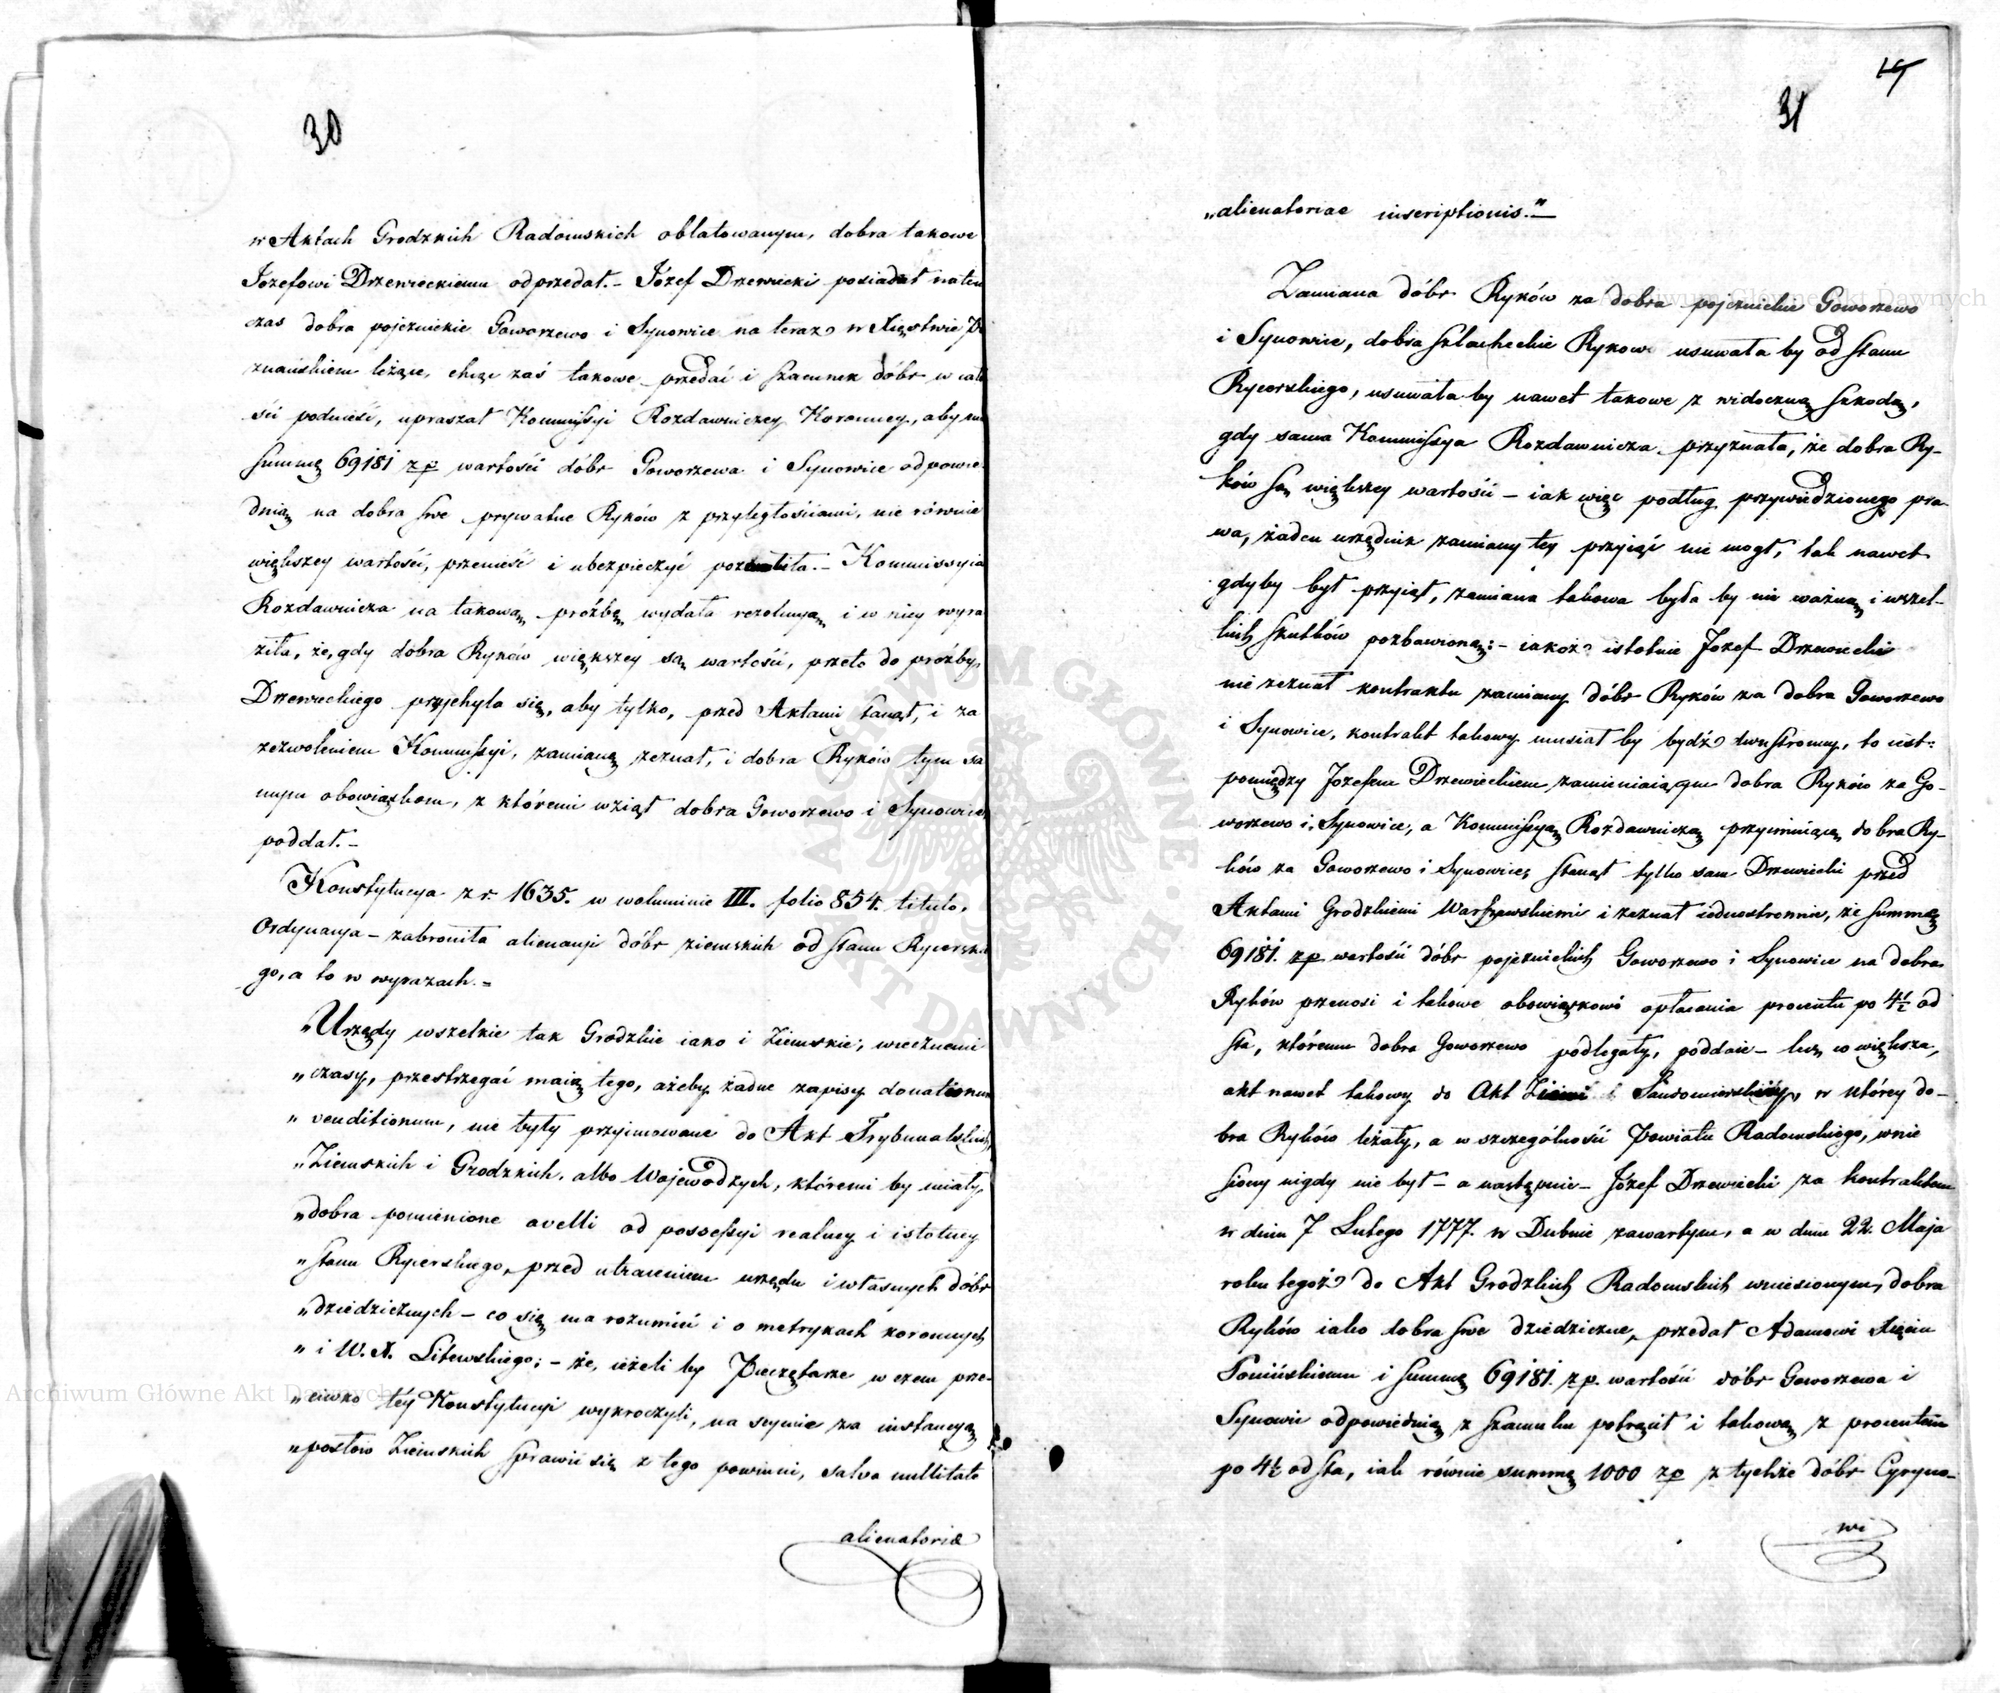 30
w Aktach Grodzkich Radomskich oblatowanym, dobra takowe
Józefowi Drzewieckiemu odprzedał. – Józef Drzewicki posiadał na ten
czas dobra pojeznickie Goworzewo i Synowice na teraz w Xięstwie Po
znańskiem leżące, chcąc zaś takowe przedać i szacunek dóbr w cało
ści podnieść, upraszał Kommissyi Rozdawniczey Koronney, aby mu
summę 69181 zp wartości dóbr Goworzewa i Synowice odpowie
dnią na dobra swe prywatne Ryków z przyległościami, nie równie
większey wartości, przenieść i ubezpieczyć pozwoliła. – Kommissyia
Rozdawnicza na takową prośbę wydała rezolucyą, i w niey wyra
ziła, że, gdy dobra Ryków większey są wartości, przeto do prośby,
Drzewieckiego przychyla się, aby tylko, przed Aktami stanął, i za
zezwoleniem Kommissyi, zamianę zeznał, i dobra Ryków tym sa
mym obowiązkom, z któremi wziął dobra Goworzewo i Synowice,
poddał. –
Konstytucya z r. 1635. w woluminie III. folio 854. titulo,
Ordynacya – zabroniła alienacyi dóbr ziemskich od stanu Rycerskie
go, a to w wyrazach. =
„Urzędy wszelkie tak Grodzkie iako i Ziemskie, wiecznemi
„czasy, przestrzegać maią tego, ażeby żadne zapisy donationum
„venditionum, nie były przyimowane do Akt Trybunalskich,
„Ziemskich i Grodzkich, albo Wojewodzych, któremi by miały,
„dobra pomienione avelli od possessyi realney i istotney
„stanu Rycerskiego, przed utraceniem urzędu i własnych dóbr
„dziedzicznych – co się ma rozumieć i o metrykach koronnych
„i W. X. Litewskiego; – że, ieżeli by Pieczętarze w czem prze-
„ciwko téy Konstytucyi wykroczyli, na seymie za instancyą
„posłów Ziemskich sprawić się z tego powinni, salva nullitate
alienatoriæ
19
31
„alienatoriae inscriptionis."
Zamiana dóbr Ryków za dobra pojeznickie Goworzewo
i Synowice, dobra szlacheckie Rykow usuwała by od stanu
Rycerskiego, usuwała by nawet takowe z widoczną szkodą,
gdy sama Kommissya Rozdawnicza przyznała, że dobra Ry-
ków są większey wartości – iak więc podług przywiedzionego pra
wa, żaden urzędnik zamiany tey przyiąć nie mogł, tak nawet
gdyby był przyiął, zamiana takowa była by nie ważną i wszel-
kich skutków pozbawioną: – iakoż istotnie Jozef Drzewiecki
nie zeznał kontraktu zamiany dóbr Ryków za dobra Goworzewo
i Synowice, kontrakt takowy musiał by bydź dwustronny, to iest:
pomiędzy Jozefem Drzewieckiem zamieniaiącym dobra Ryków za Go-
worzewo i Synowice, a Kommissyą Rozdawniczą przyimuiącą dobra Ry-
ków za Goworzewo i Synowice, stanął tylko sam Drzewiecki przed
Aktami Grodzkiemi Warszawskiemi i zeznał iednostronnie, że summę
69181. zp wartości dóbr pojeznickich Goworzewo i Synowice na dobra
Ryków przenosi i takowe obowiązkowi opłacania procentu po 4½ od
sta, któremu dobra Goworzewo podlegały, poddaie – lecz, co większa,
akt nawet takowy do Akt Ziemi Sandomierskiéy, w którey do-
bra Ryków leżały, a w szczególności Powiatu Radomskiego, wnie
siony nigdy nie był – a następnie – Józef Drzewiecki za kontraktem
w dniu 7 Lutego 1777. w Dubnie zawartym, a w dniu 22. Maja
roku tegoż do Akt Grodzkich Radomskich wniesionym, dobra
Ryków iako dobra swe dziedziczne, przedał Adamowi Xięciu
Ponińskiemu i summę 69181. zp. wartości dóbr Goworzewa i
Synowic odpowiednią z szacunku potrącił i takową z procentem
po 4½ od sta, iak równie summę 1000 zp z tychże dóbr Cyryno-
wi
Archiwum Główne Akt Dawnych
Archiwum Główne Akt Dawnych
ARCHIWUM GŁÓWNE AKT DAWNYCH